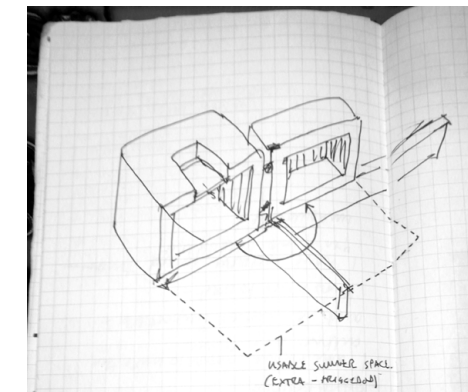 USABLE SUMMER SPACE.
(EXTRA -